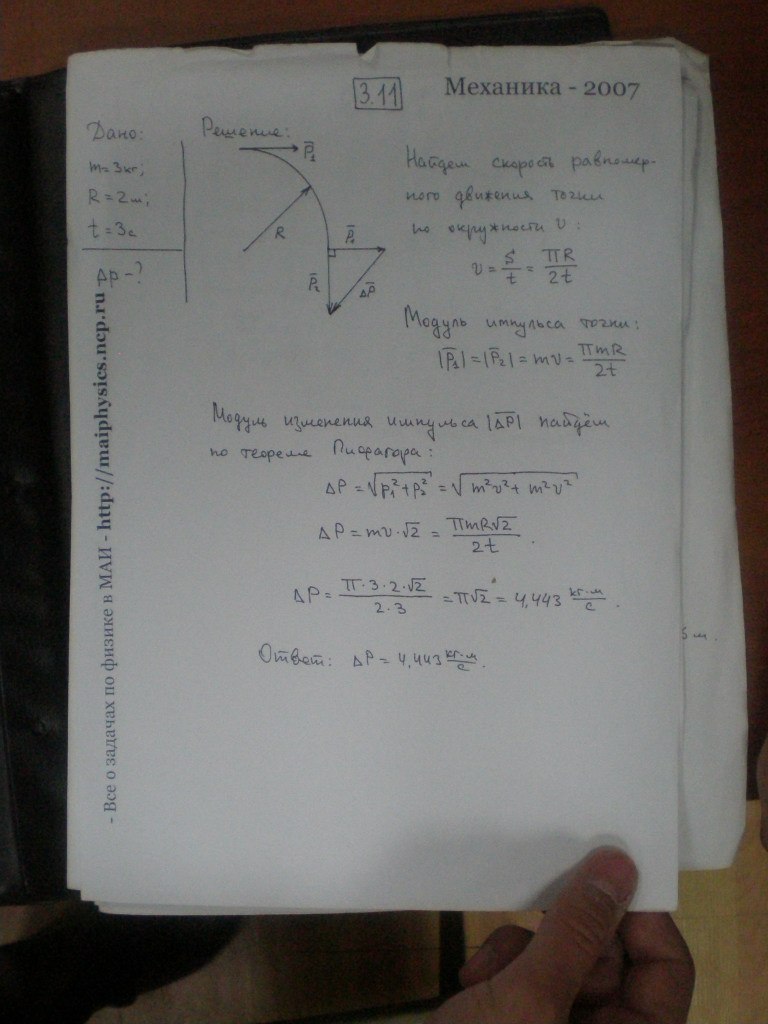 3.11
Механика - 2007
Дано:
m=3кг;
R=2м;
t=3с
Δp-?
Решение:
P̅₁
R
P̅₁
P̅₂
Δ̅P̅
Найдем скорость равномер-
ного движения точки
по окружности v:
v = S/t = πR/2t
Модуль импульса точки:
|P̅₁| = |P̅₂| = mv = πmR/2t
Модуль изменения импульса |Δ̅P̅| найдём
по теореме Пифагора:
ΔP = √(p₁²+p₂²) = √(m²v²+m²v²)
ΔP = mv·√2 = πmR√2/2t.
ΔP = π·3·2·√2/2·3 = π√2 = 4,443 кг·м/с.
Ответ: ΔP = 4,443 кг·м/с.
- Все о задачах по физике в МАИ - http://maiphysics.ncp.ru
м.